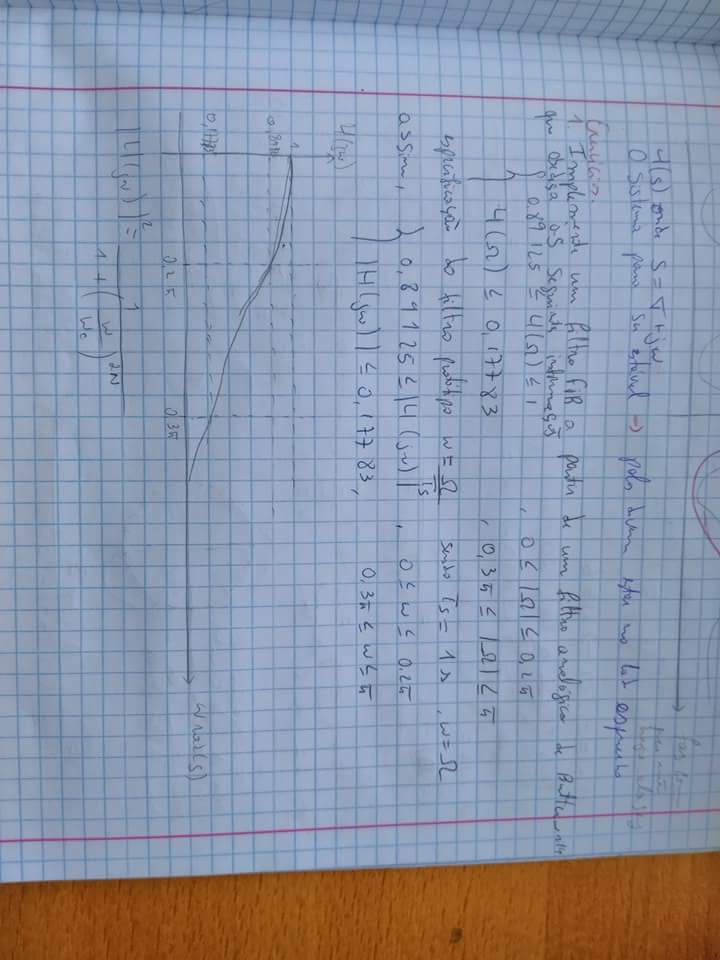 H(s) onde S = σ + jω
O sistema para ser estável → polos devem estar no lado esquerdo
Exercício:
1. Implemente um filtro FIR a partir de um filtro analógico de Butterworth
que obedeça as seguintes informações
{ 0,89125 ≤ H(Ω) ≤ 1 , 0 ≤ |Ω| ≤ 0,2π
H(Ω) ≤ 0,17783 , 0,3π ≤ |Ω| ≤ π
especificação do filtro protótipo ω = Ω/Ts sendo Ts = 1s , ω = Ω
assim, { 0,89125 ≤ |H(jω)| , 0 ≤ ω ≤ 0,2π
|H(jω)| ≤ 0,17783, 0,3π ≤ ω ≤ π
H(jω)
1
0,2π
0,3π
ω rad(s)
|H(jω)|² = 1 / 1 + (ω/ωc)^2N